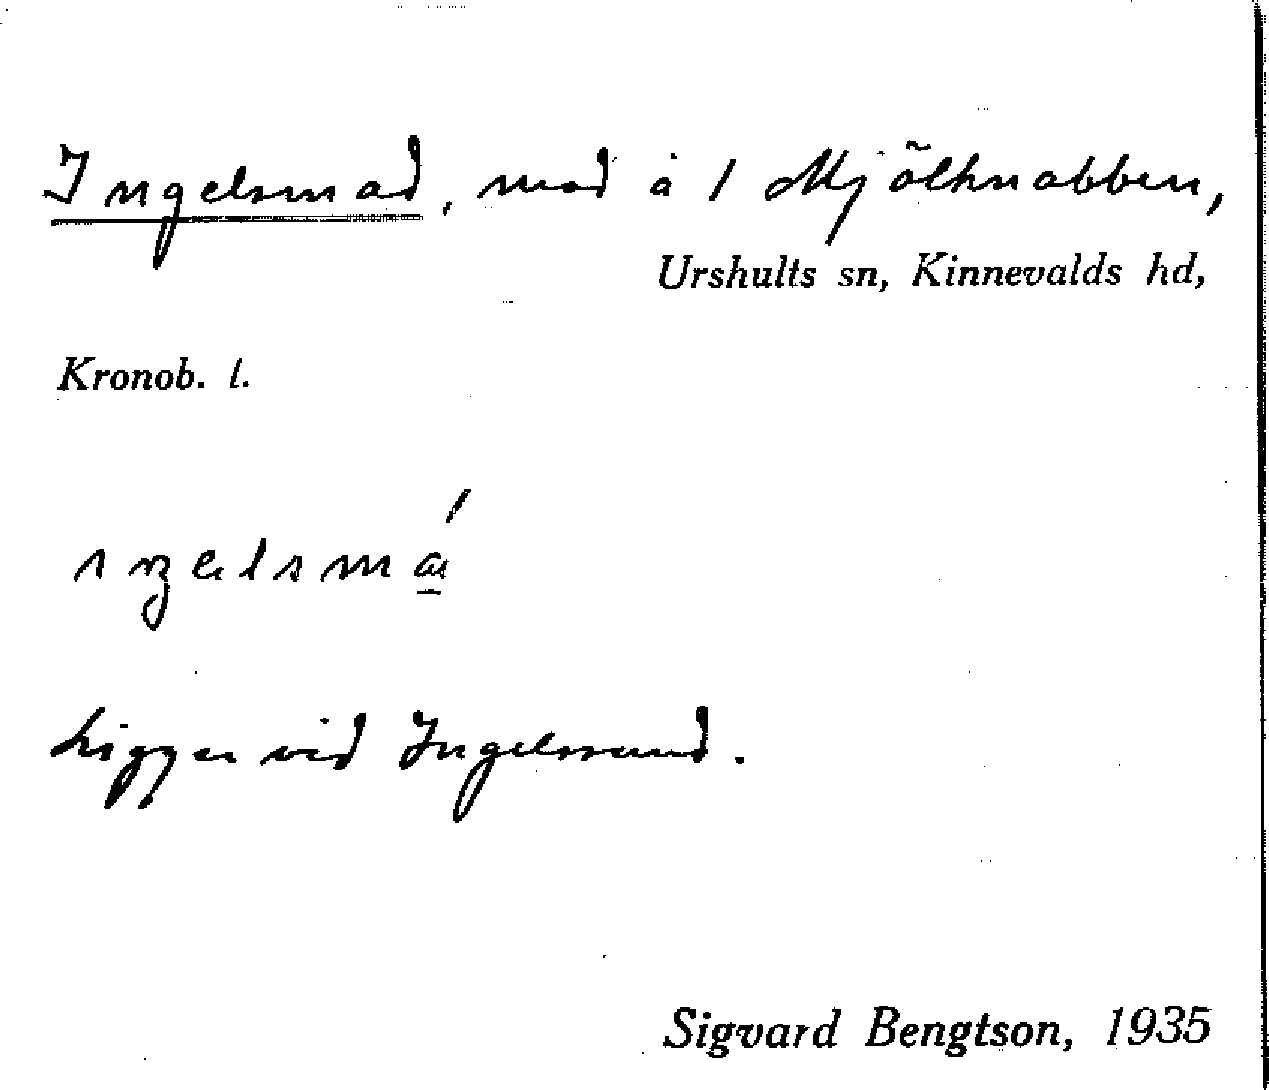 Ingelsmad, mad å 1 Mjölknabben,
Urshults sn, Kinnevalds hd,
Kronob. l.
Ligger vid Ingelssund.
Sigvard Bengtson, 1935